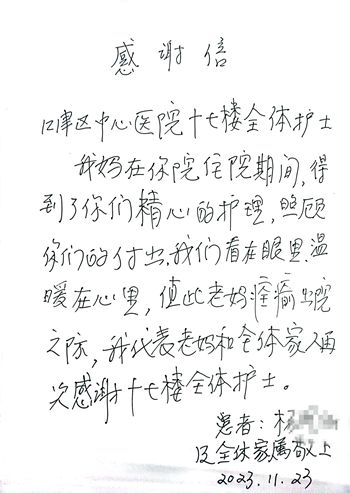 感谢信
江津区中心医院十七楼全体护士
我妈在你院住院期间,得
到了你们精心的护理,照顾
你们的付出,我们看在眼里.温
暖在心里,值此老妈痊愈出院
之际,我代表老妈和全体家人再
次感谢十七楼全体护士。
患者:杨
及全体家属敬上
2023.11.23